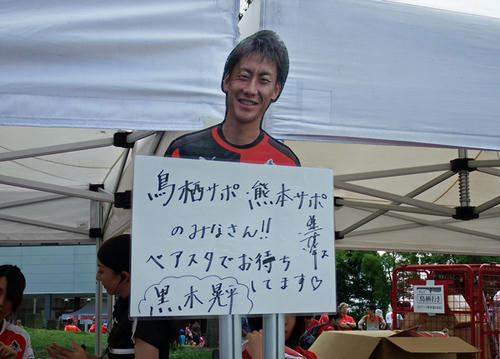 鳥栖サポ・熊本サポ
のみなさん!!
ベアスタでお待ち
してます♡
黒木晃平
鳥栖行き